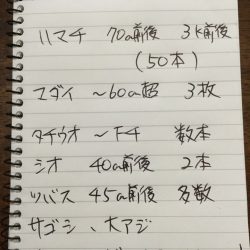 ハマチ 70cm前後 3k前後
(50本)
マダイ ～60cm超 3枚
タチウオ ～F4 数本
シオ 40cm前後 2本
ツバス 45cm前後 多数
サゴシ、大アジ